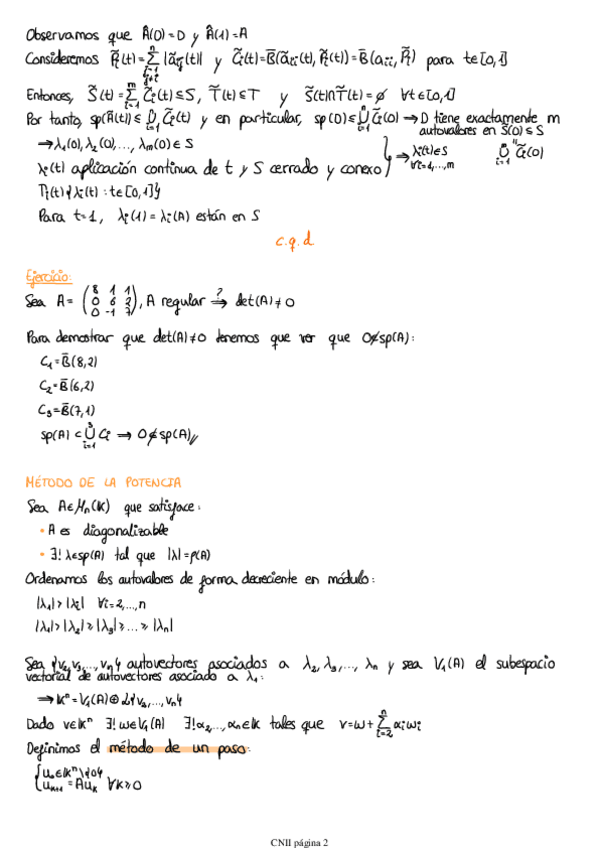 Observamos que Â(0)=D y Â(1)=A
Consideremos P̃ᵢ(t)=∑ⁿⱼ₌₁,ⱼ≠ᵢ |ãᵢⱼ(t)| y C̃ᵢ(t)=B̄(ãᵢᵢ(t), P̃ᵢ(t))=B̄(aᵢᵢ, P̃ᵢ) para t∈[0,1]
Entonces, S̃(t)=∑ᵐᵢ₌₁ C̃ᵢ(t)⊆S, T̃(t)⊆T y S̃(t)∩T̃(t)=∅ ∀t∈[0,1]
Por tanto, sp(Ã(t))⊆⋃ⁿᵢ₌₁ C̃ᵢ(t) y en particular, sp(D)⊆⋃ⁿᵢ₌₁ C̃ᵢ(0) → D tiene exactamente m
autovalores en S̃(0)⊆S
→λ₁(0), λ₂(0), ..., λₘ(0)∈S ⟹ λᵢ(t)∈S ∀i=1,...,m ⋃ᵐᵢ₌₁ C̃ᵢ(0)
λᵢ(t) aplicación continua de t y S cerrado y conexo
{λᵢ(t) : t∈[0,1]}
Para t=1, λᵢ(1)=λᵢ(A) están en S
c.q.d.
Ejercicio:
Sea A=(8 1 1; 0 6 2; 0 -1 7), A regular ⟹? det(A)≠0
Para demostrar que det(A)≠0 tenemos que ver que 0∉sp(A):
C₁=B̄(8,2)
C₂=B̄(6,2)
C₃=B̄(7,1)
sp(A)⊂⋃³ᵢ₌₁ Cᵢ ⟹ 0∉sp(A)//
MÉTODO DE LA POTENCIA
Sea A∈Mₙ(K) que satisface:
• A es diagonalizable
• ∃! λ∈sp(A) tal que |λ|=ρ(A)
Ordenamos los autovalores de forma decreciente en módulo:
|λ₁|>|λᵢ| ∀i=2,...,n
|λ₁|>|λ₂|≥|λ₃|≥...≥|λₙ|
Sea {v₂,v₃,...,vₙ} autovectores asociados a λ₂, λ₃, ..., λₙ y sea V₁(A) el subespacio
vectorial de autovectores asociado a λ₁:
⟹Kⁿ=V₁(A)⊕L{v₂,...,vₙ}
Dado v∈Kⁿ ∃! w∈V₁(A) ∃!α₂,...,αₙ∈K tales que v=w+∑ⁿᵢ₌₂ αᵢwᵢ
Definimos el método de un paso:
{u₀∈Kⁿ\{0}
uₖ₊₁=Auₖ ∀k≥0
CNII página 2